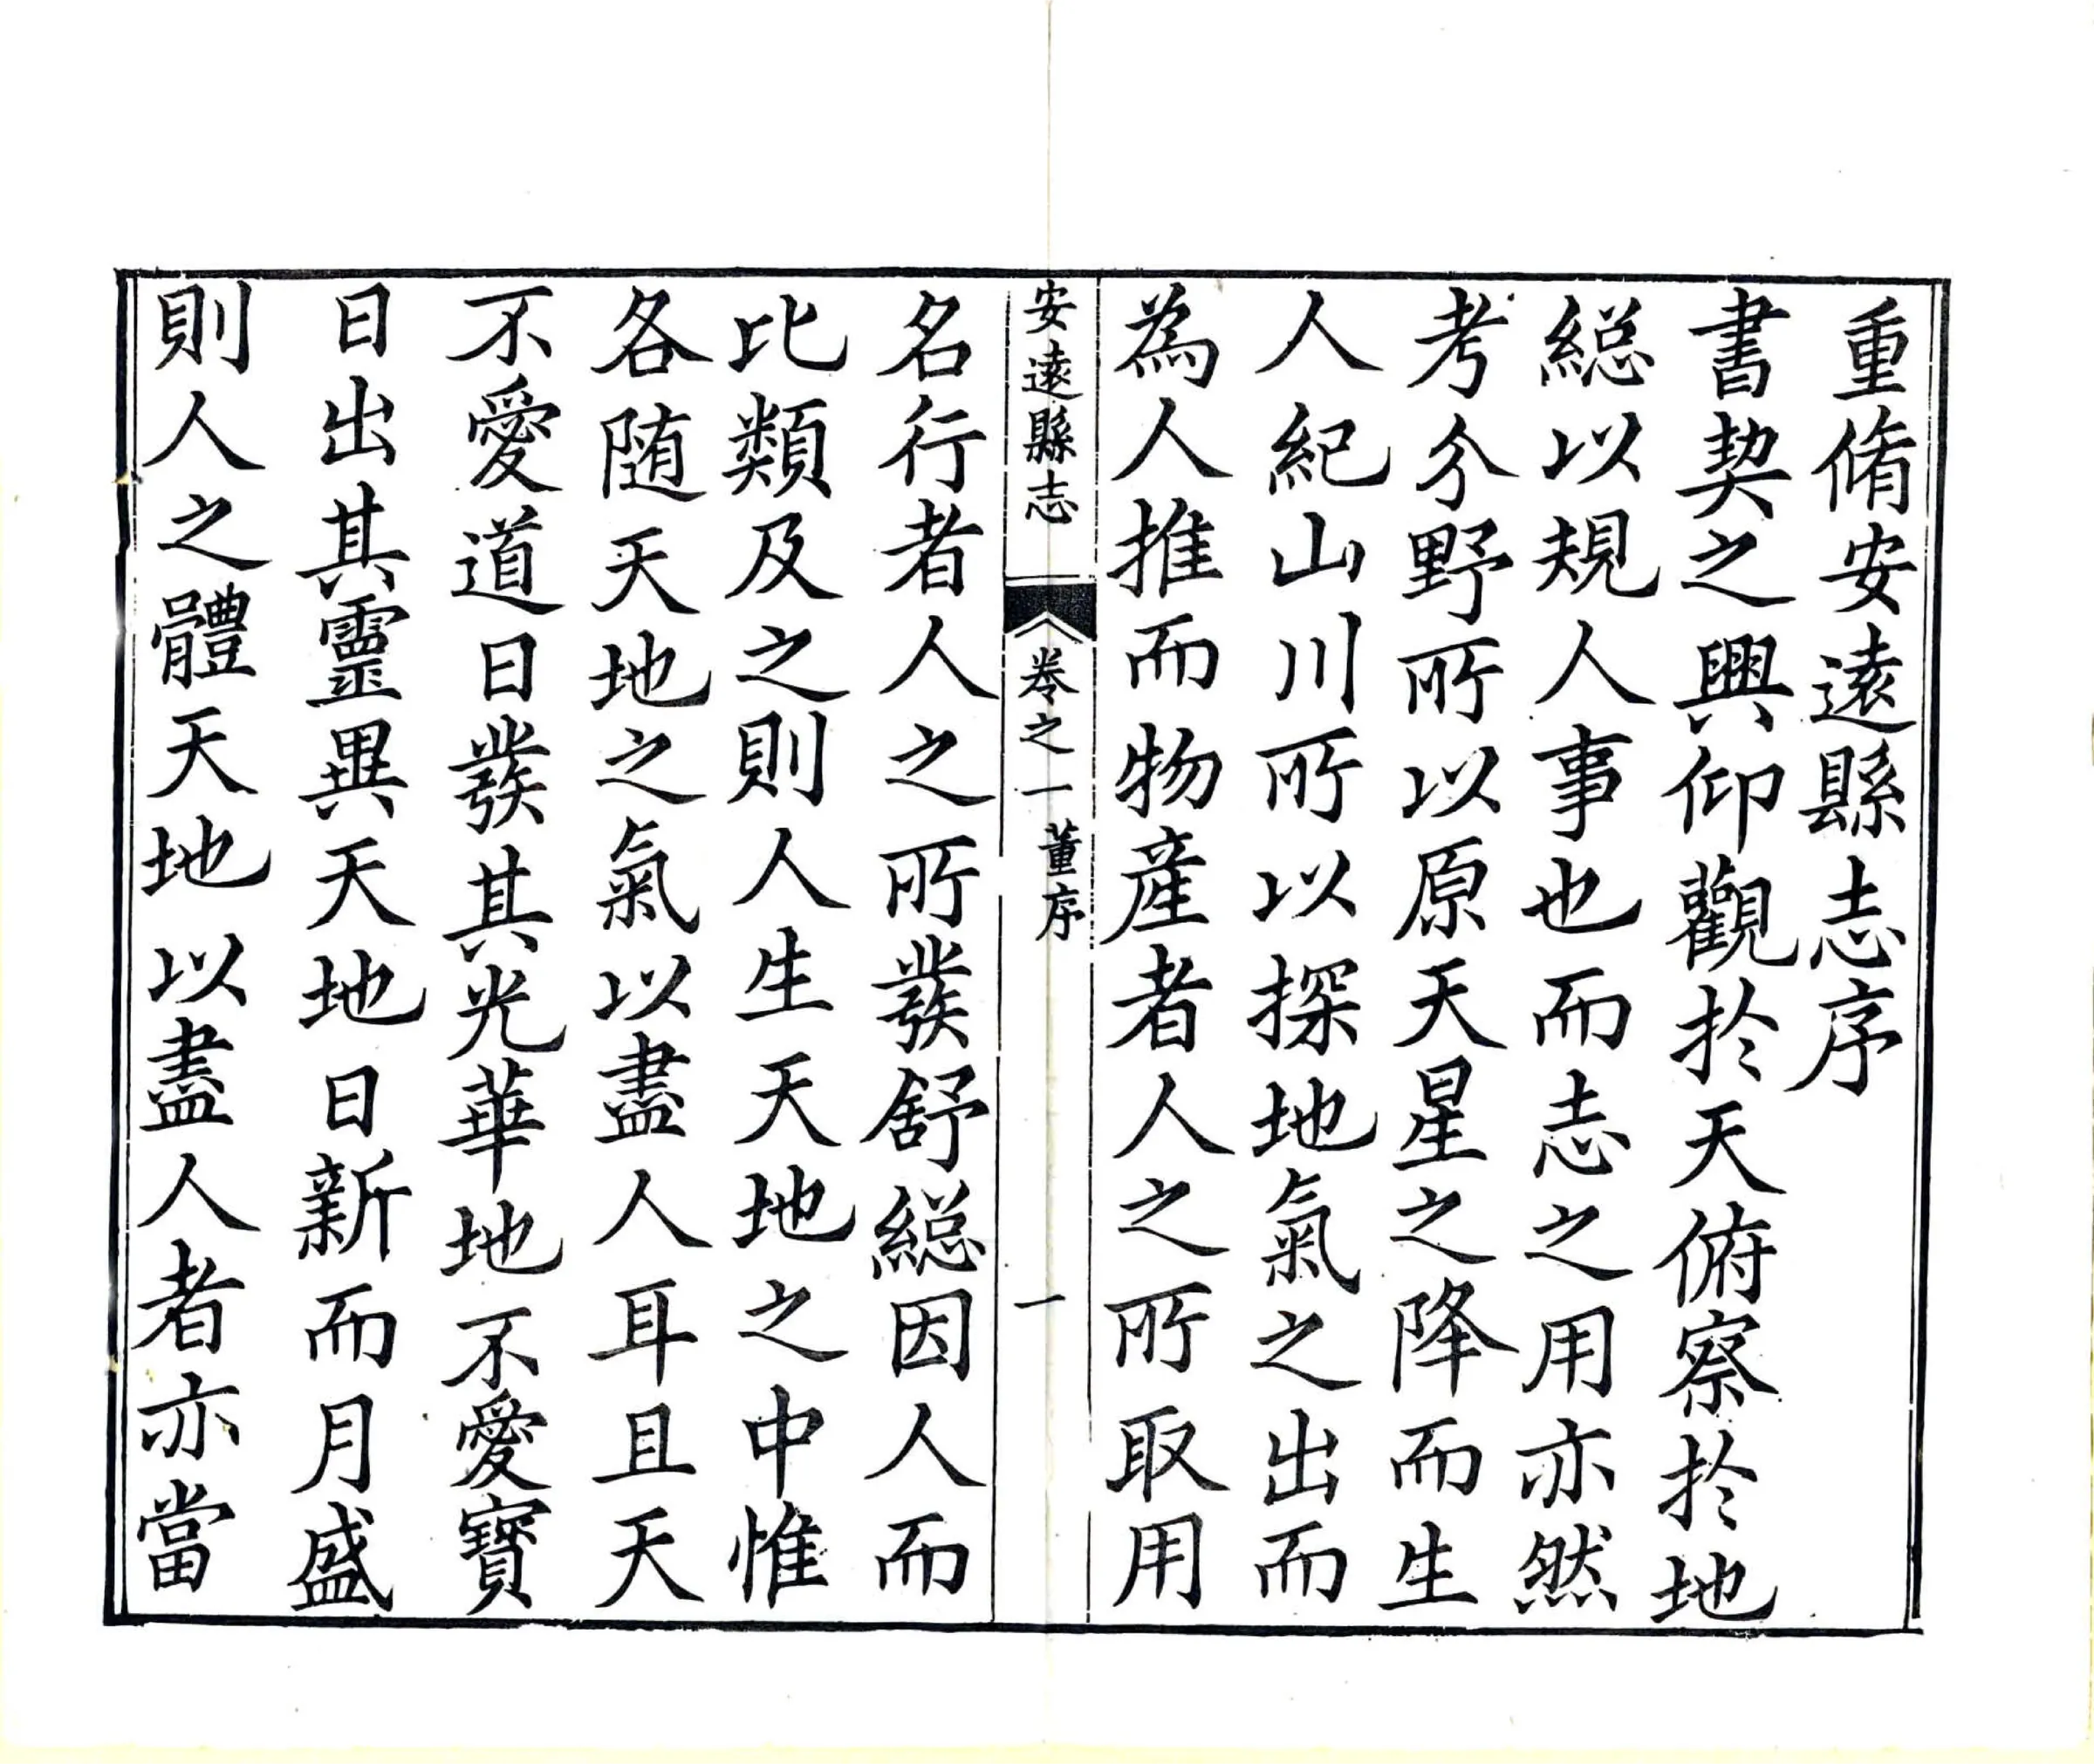 重脩安遠縣志序
書契之興仰觀於天俯察於地
縂以規人事也而志之用亦然
考分野所以原天星之降而生
人紀山川所以探地氣之出而
為人推而物產者人之所取用
安遠縣志
卷之一
董序
一
名行者人之所發舒縂因人而
比類及之則人生天地之中惟
各随天地之氣以盡人耳且天
不愛道日發其光華地不愛寶
日出其靈異天地日新而月盛
則人之體天地以盡人者亦當